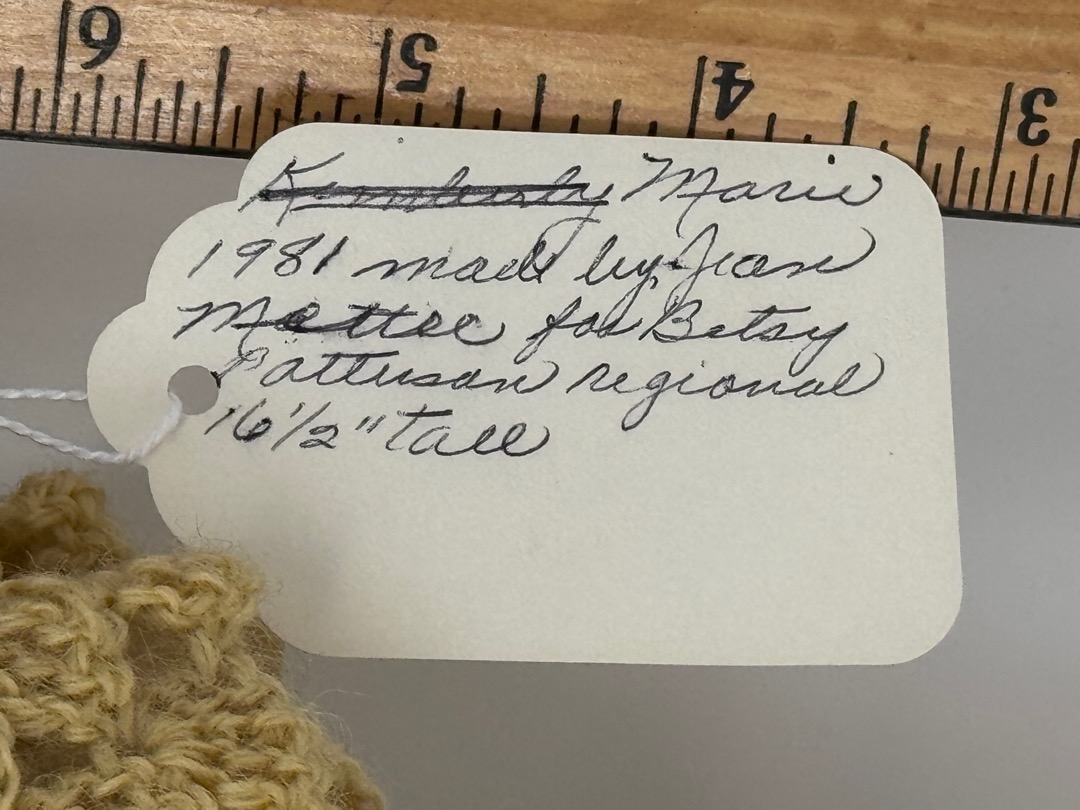 6 5 4 3
Kimberly Marie
1981 made by Jean
Mettee for Betsy
Patterson regional
16 1/2" tall